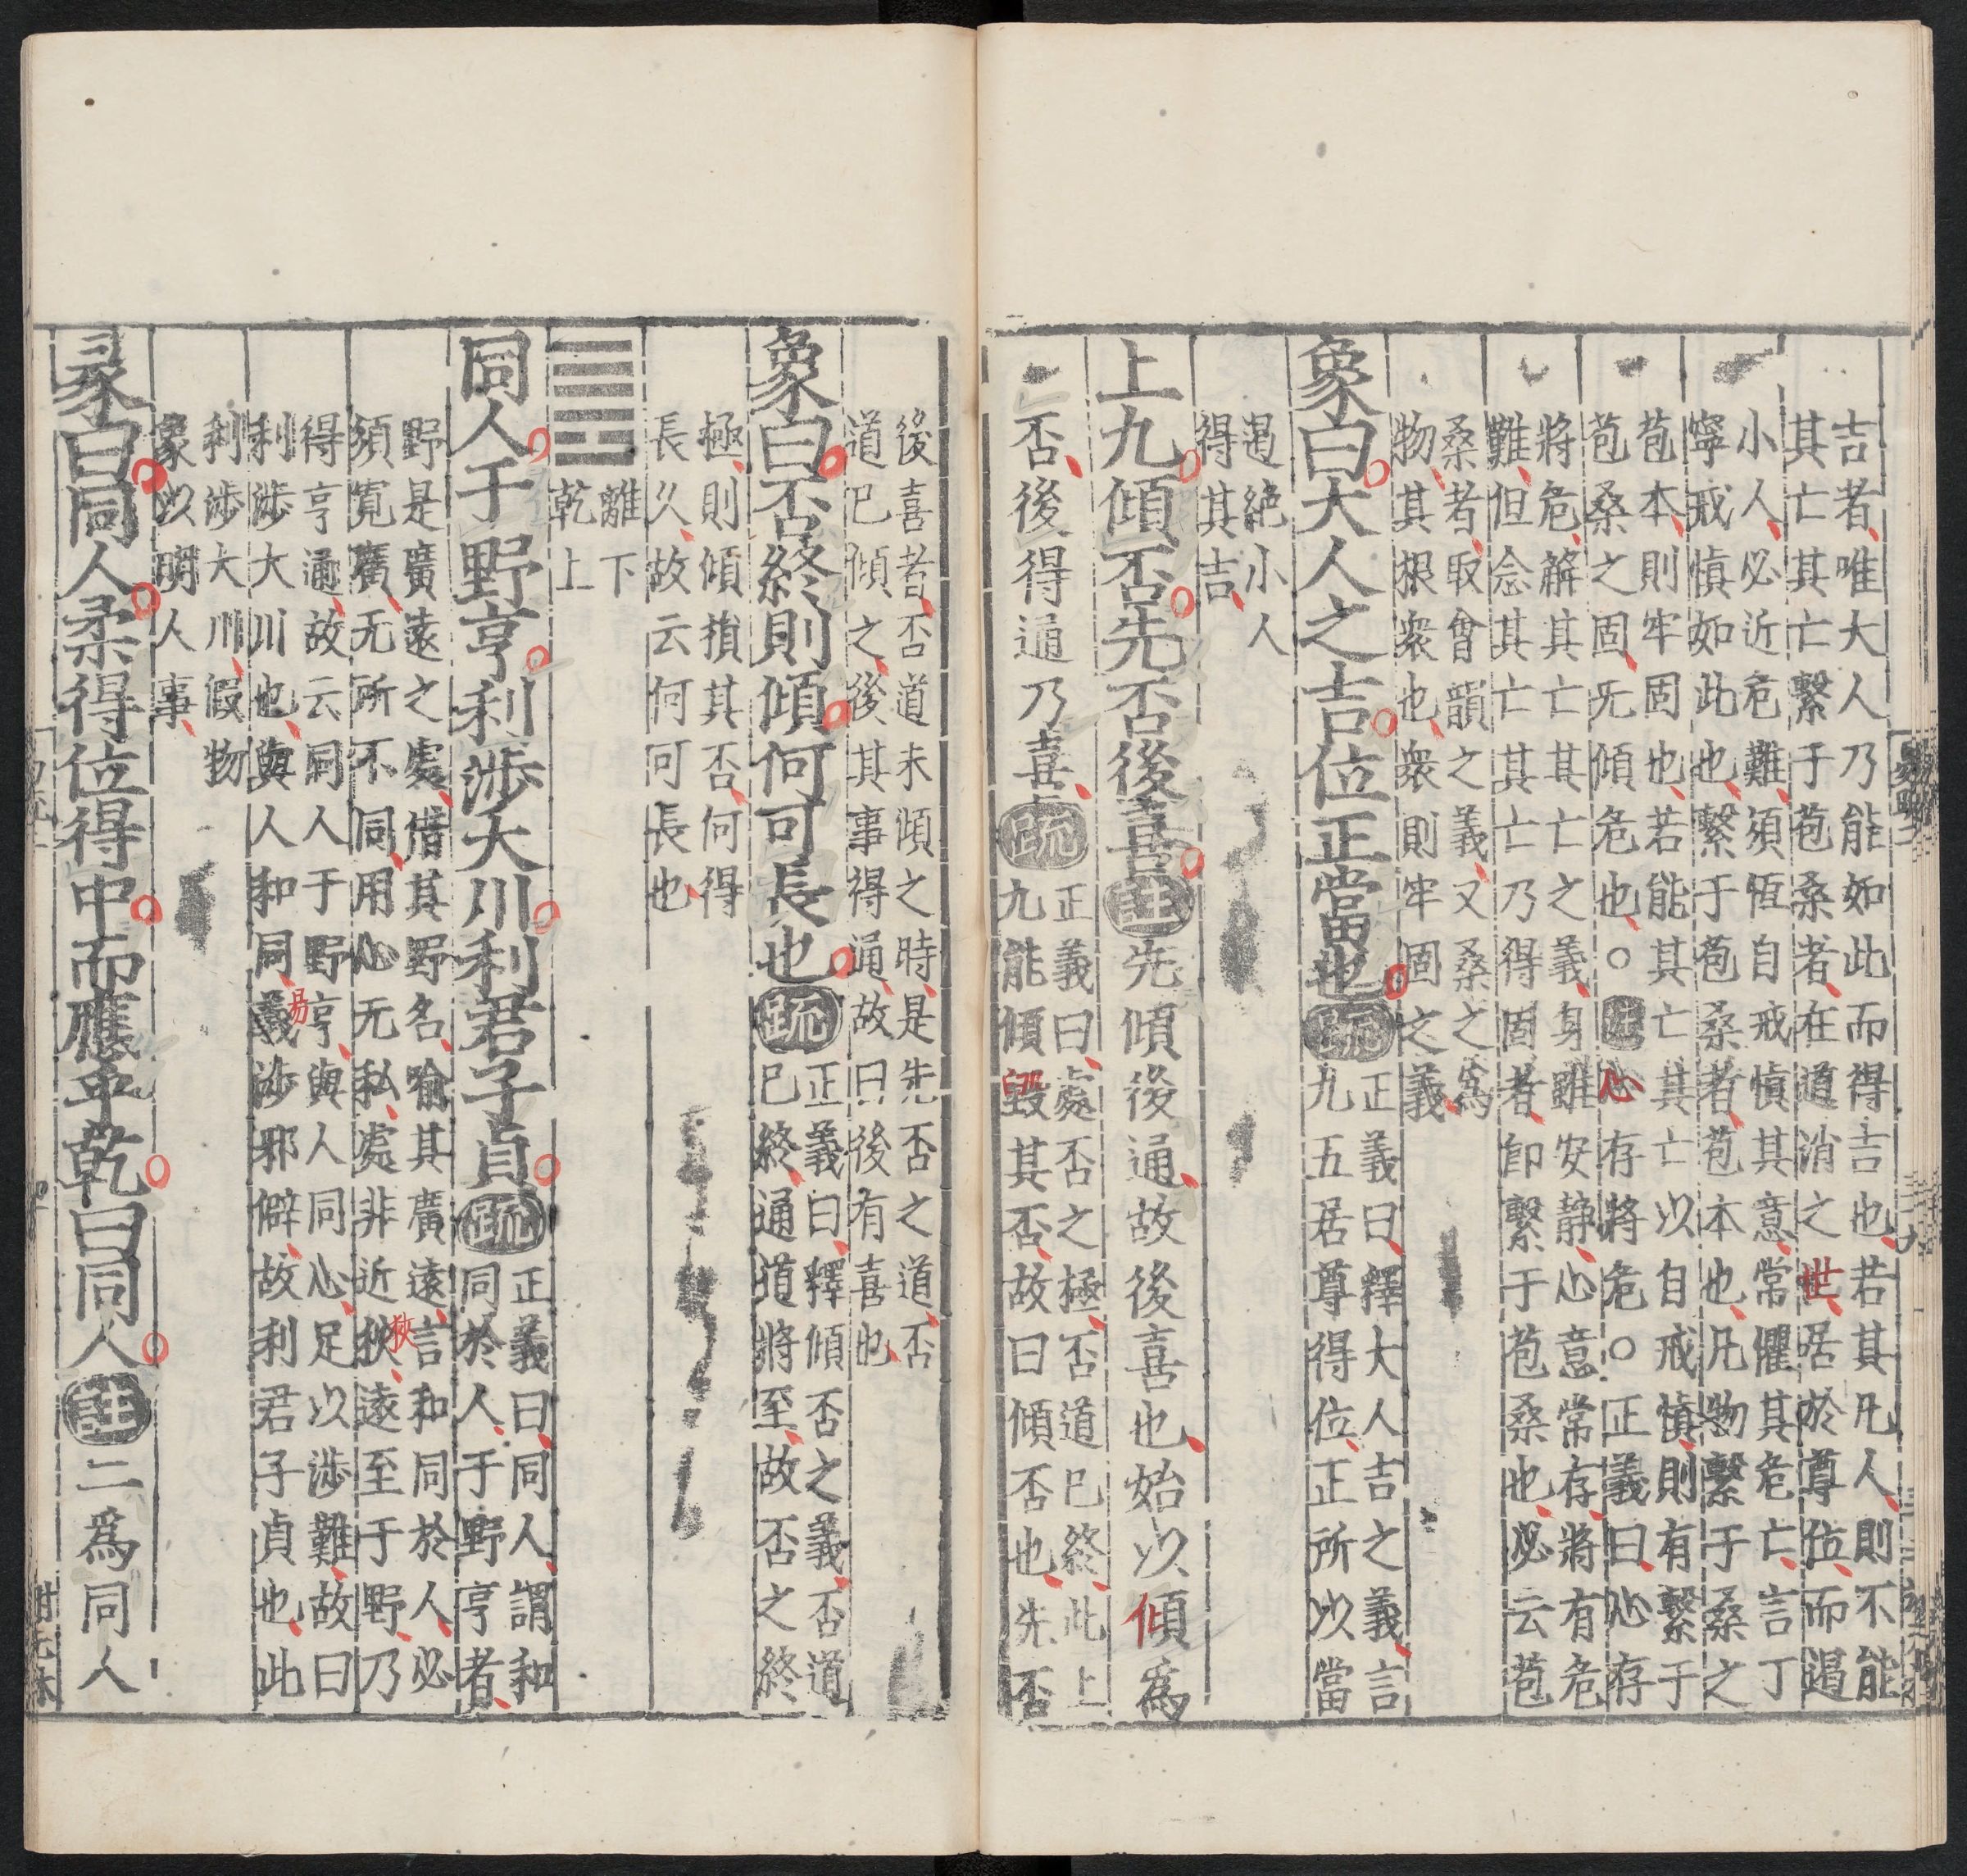 吉者唯大人乃能如此而得吉也若其凡人則不能
其亡其亡繫于苞桑者在道消之世居於尊位而遏
小人必近危難須恆自戒慎其意常懼其危亡言丁
寧戒慎如此也繫于苞桑者苞本也凡物繫于桑之
苞本則牢固也若能其亡其亡以自戒慎則有繫于
苞桑之固无傾危也○注心存將危○正義曰心存
將危解其亡其亡之義身雖安静心意常存將有危
難但念其亡其亡乃得固者即繫于苞桑也必云苞
桑者取會韻之義又桑之爲
物其根衆也衆則牢固之義
象曰大人之吉位正當也疏
正義曰釋大人吉之義言
九五居尊得位正所以當
遏絶小人
得其吉
上九傾否先否後喜註先傾後通故後喜也始以傾爲
否後得通乃喜疏
正義曰處否之極否道已終此上
九能傾毀其否故曰傾否也先否
後喜者否道未傾之時是先否之道否
道已傾之後其事得通故曰後有喜也
象曰否終則傾何可長也疏
正義曰釋傾否之義否道
已終通道將至故否之終
極則傾損其否何得
長久故云何可長也
離下
乾上
同人于野亨利涉大川利君子貞疏
正義曰同人謂和
同於人于野亨者
野是廣遠之處借其野名喻其廣遠言和同於人必
須寛廣无所不同用心无私處非近狹遠至于野乃
狹
得亨通故云同人于野亨與人同心足以涉難故曰
利涉大川也與人和同義涉邪僻故利君子貞也此
易
利涉大川假物
象以明人事
彖曰同人柔得位得中而應乎乾曰同人註二爲同人